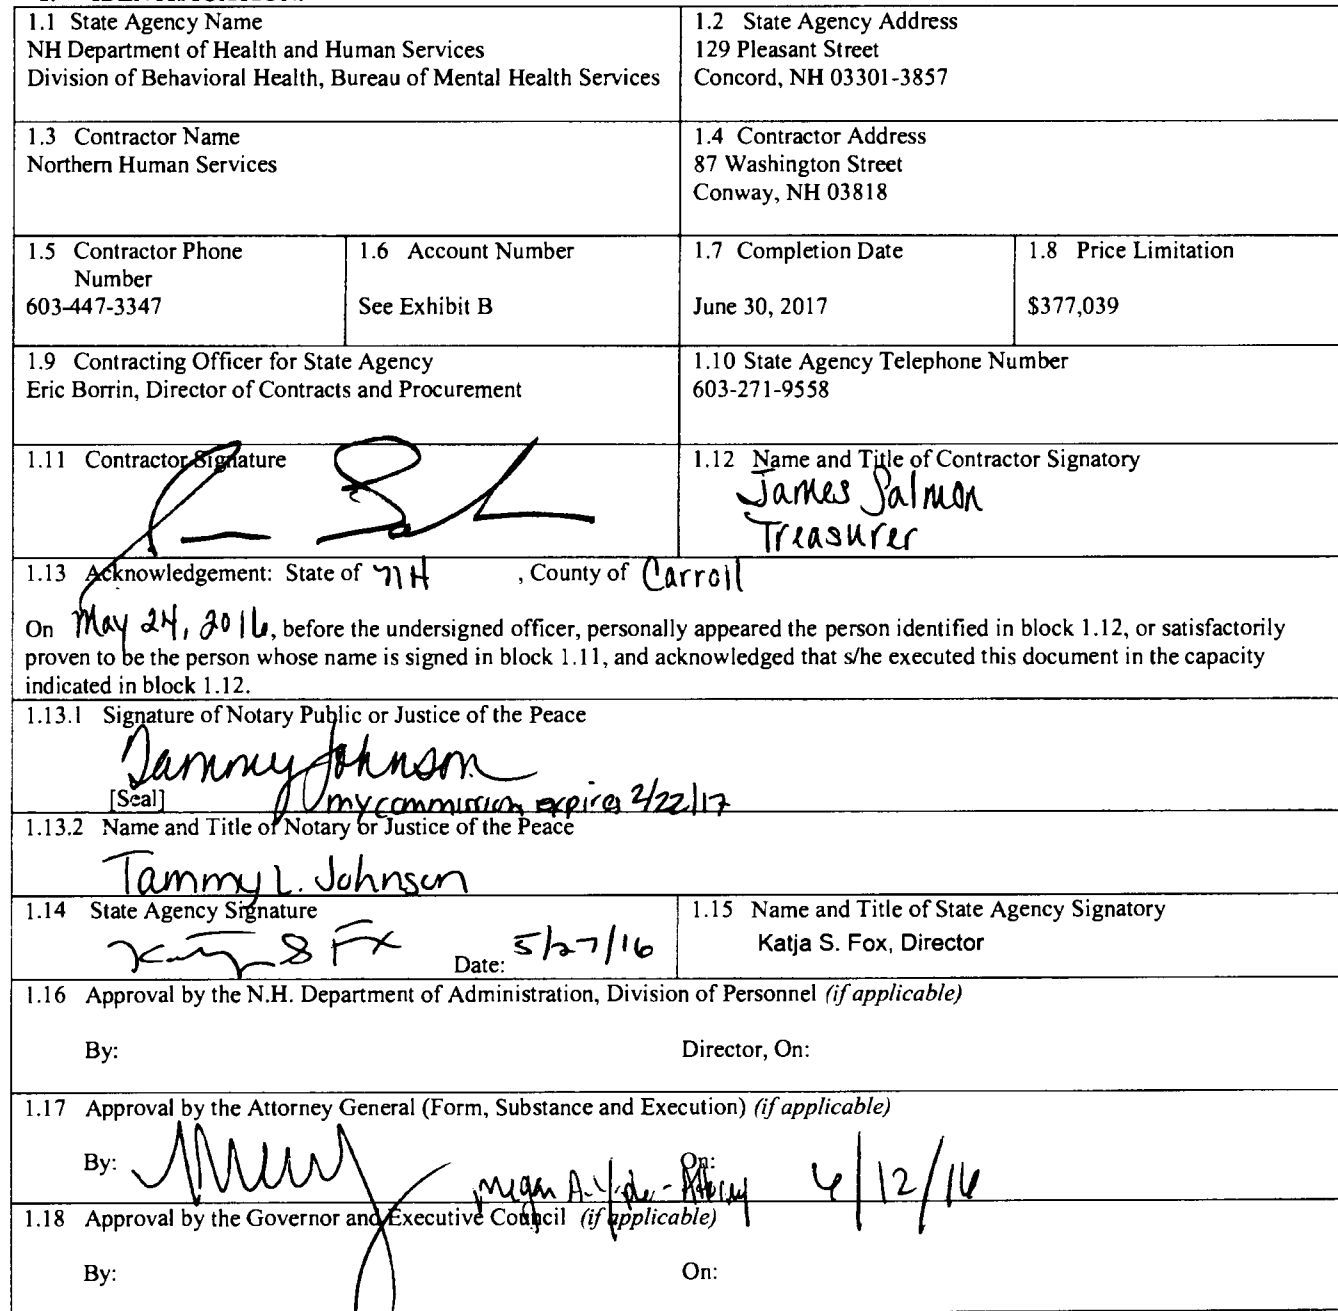 1.1 State Agency Name
NH Department of Health and Human Services
Division of Behavioral Health, Bureau of Mental Health Services
1.2 State Agency Address
129 Pleasant Street
Concord, NH 03301-3857
1.3 Contractor Name
Northern Human Services
1.4 Contractor Address
87 Washington Street
Conway, NH 03818
1.5 Contractor Phone
Number
603-447-3347
1.6 Account Number
See Exhibit B
1.7 Completion Date
June 30, 2017
1.8 Price Limitation
$377,039
1.9 Contracting Officer for State Agency
Eric Borrin, Director of Contracts and Procurement
1.10 State Agency Telephone Number
603-271-9558
1.11 Contractor Signature
1.12 Name and Title of Contractor Signatory
James Salmon
Treasurer
1.13 Acknowledgement: State of NH , County of Carroll
On May 24, 2016, before the undersigned officer, personally appeared the person identified in block 1.12, or satisfactorily
proven to be the person whose name is signed in block 1.11, and acknowledged that s/he executed this document in the capacity
indicated in block 1.12.
1.13.1 Signature of Notary Public or Justice of the Peace
Tammy Johnson
[Seal] my commission expires 2/22/17
1.13.2 Name and Title of Notary or Justice of the Peace
Tammy L. Johnson
1.14 State Agency Signature
S Fox
Date: 5/27/16
1.15 Name and Title of State Agency Signatory
Katja S. Fox, Director
1.16 Approval by the N.H. Department of Administration, Division of Personnel (if applicable)
By: Director, On:
1.17 Approval by the Attorney General (Form, Substance and Execution) (if applicable)
By: Megan A. - Attorney On: /12/16
1.18 Approval by the Governor and Executive Council (if applicable)
By: On: